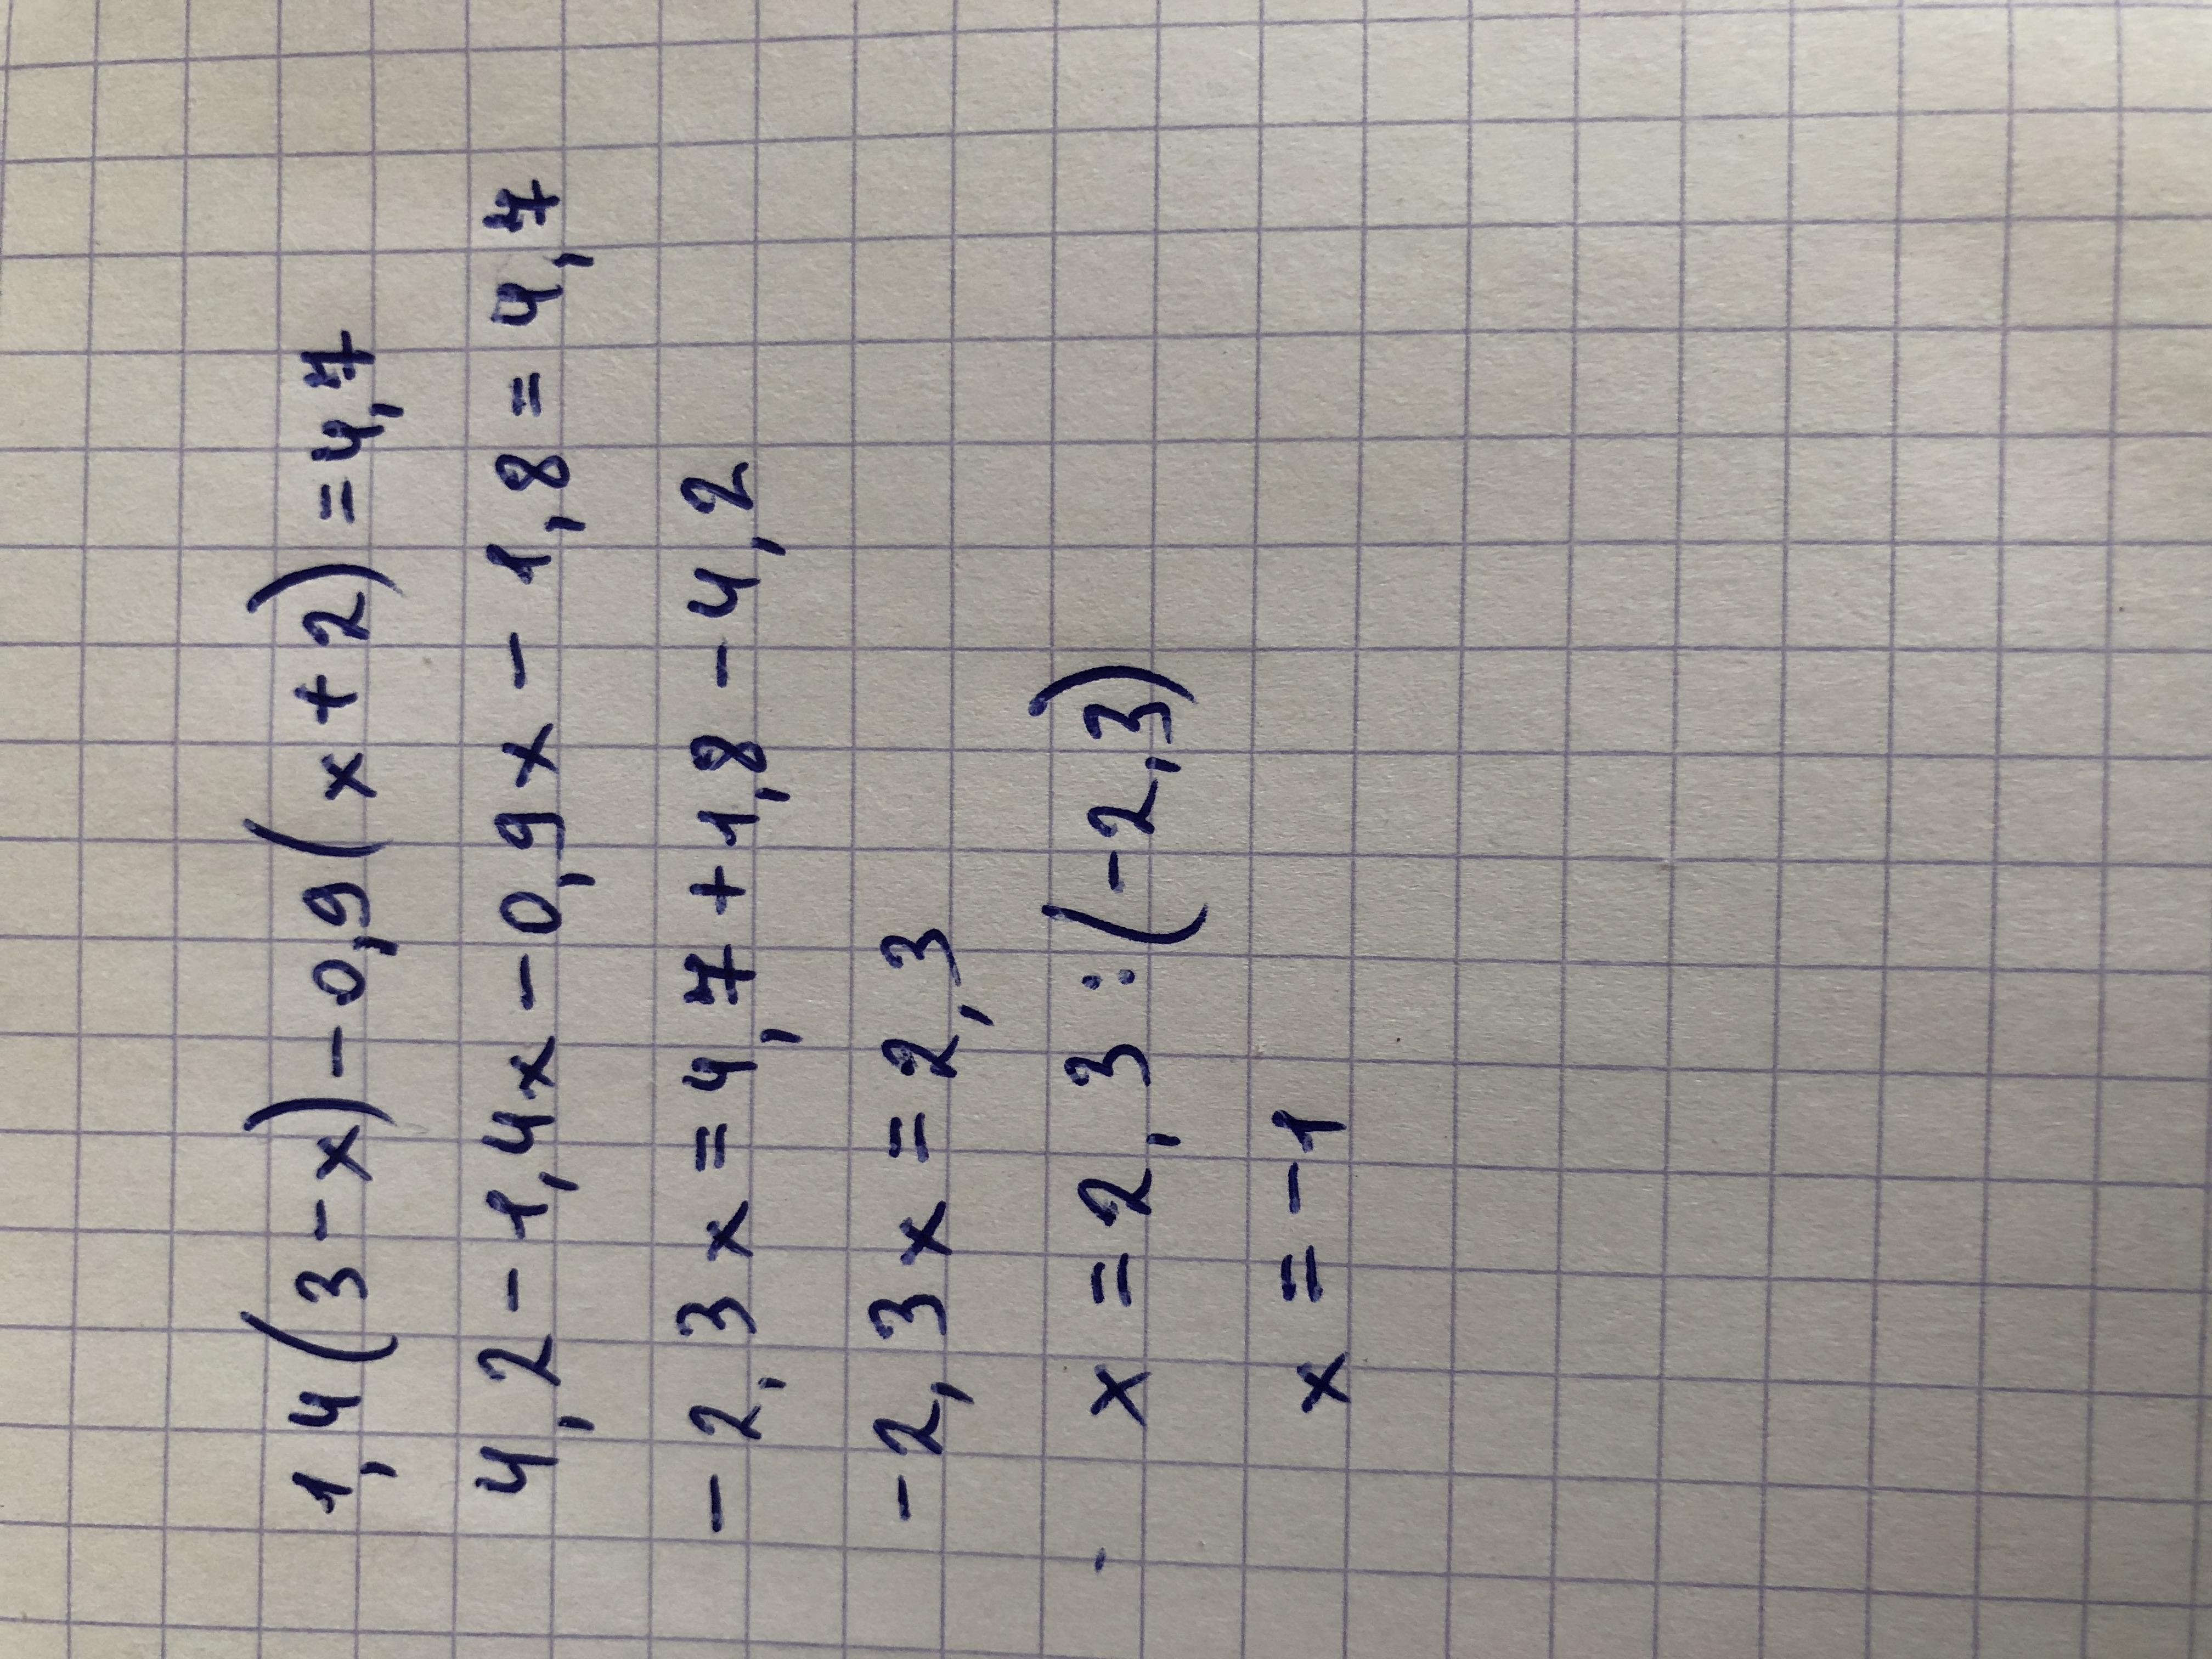 1,4(3-x)-0,9(x+2)=4,7
4,2-1,4x-0,9x-1,8=4,7
-2,3x=4,7+1,8-4,2
-2,3x=2,3
x=2,3:(-2,3)
x=-1